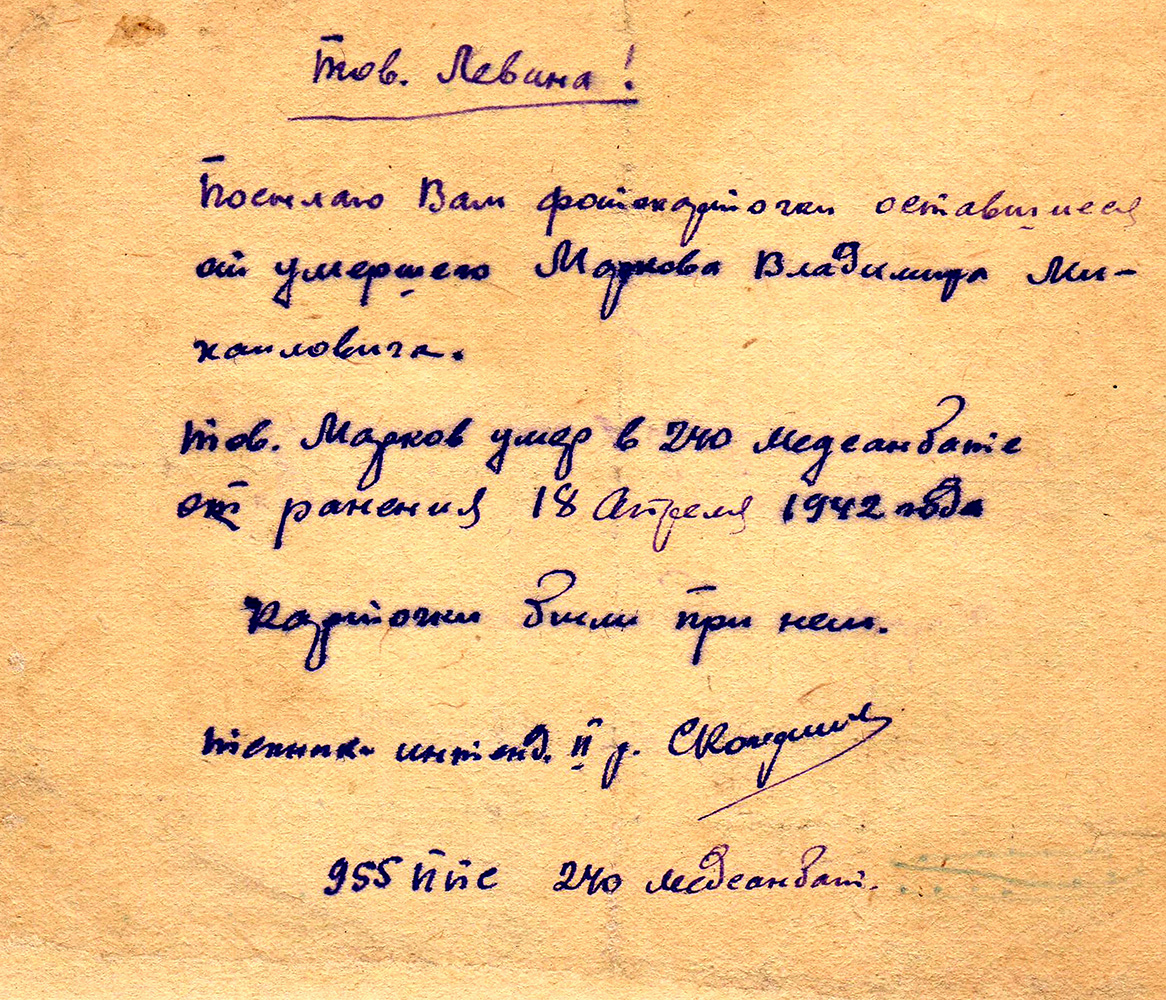 Тов. Левина!
Посылаю Вам фотокарточки оставшиеся
от умершего Маркова Владимира Ми-
хаиловича.
Тов. Марков умер в 240 медсанбате
от ранения 18 Апреля 1942 года
Карточки были при нем.
Техник интенд. II р.
955 ППС 240 медсанбат.